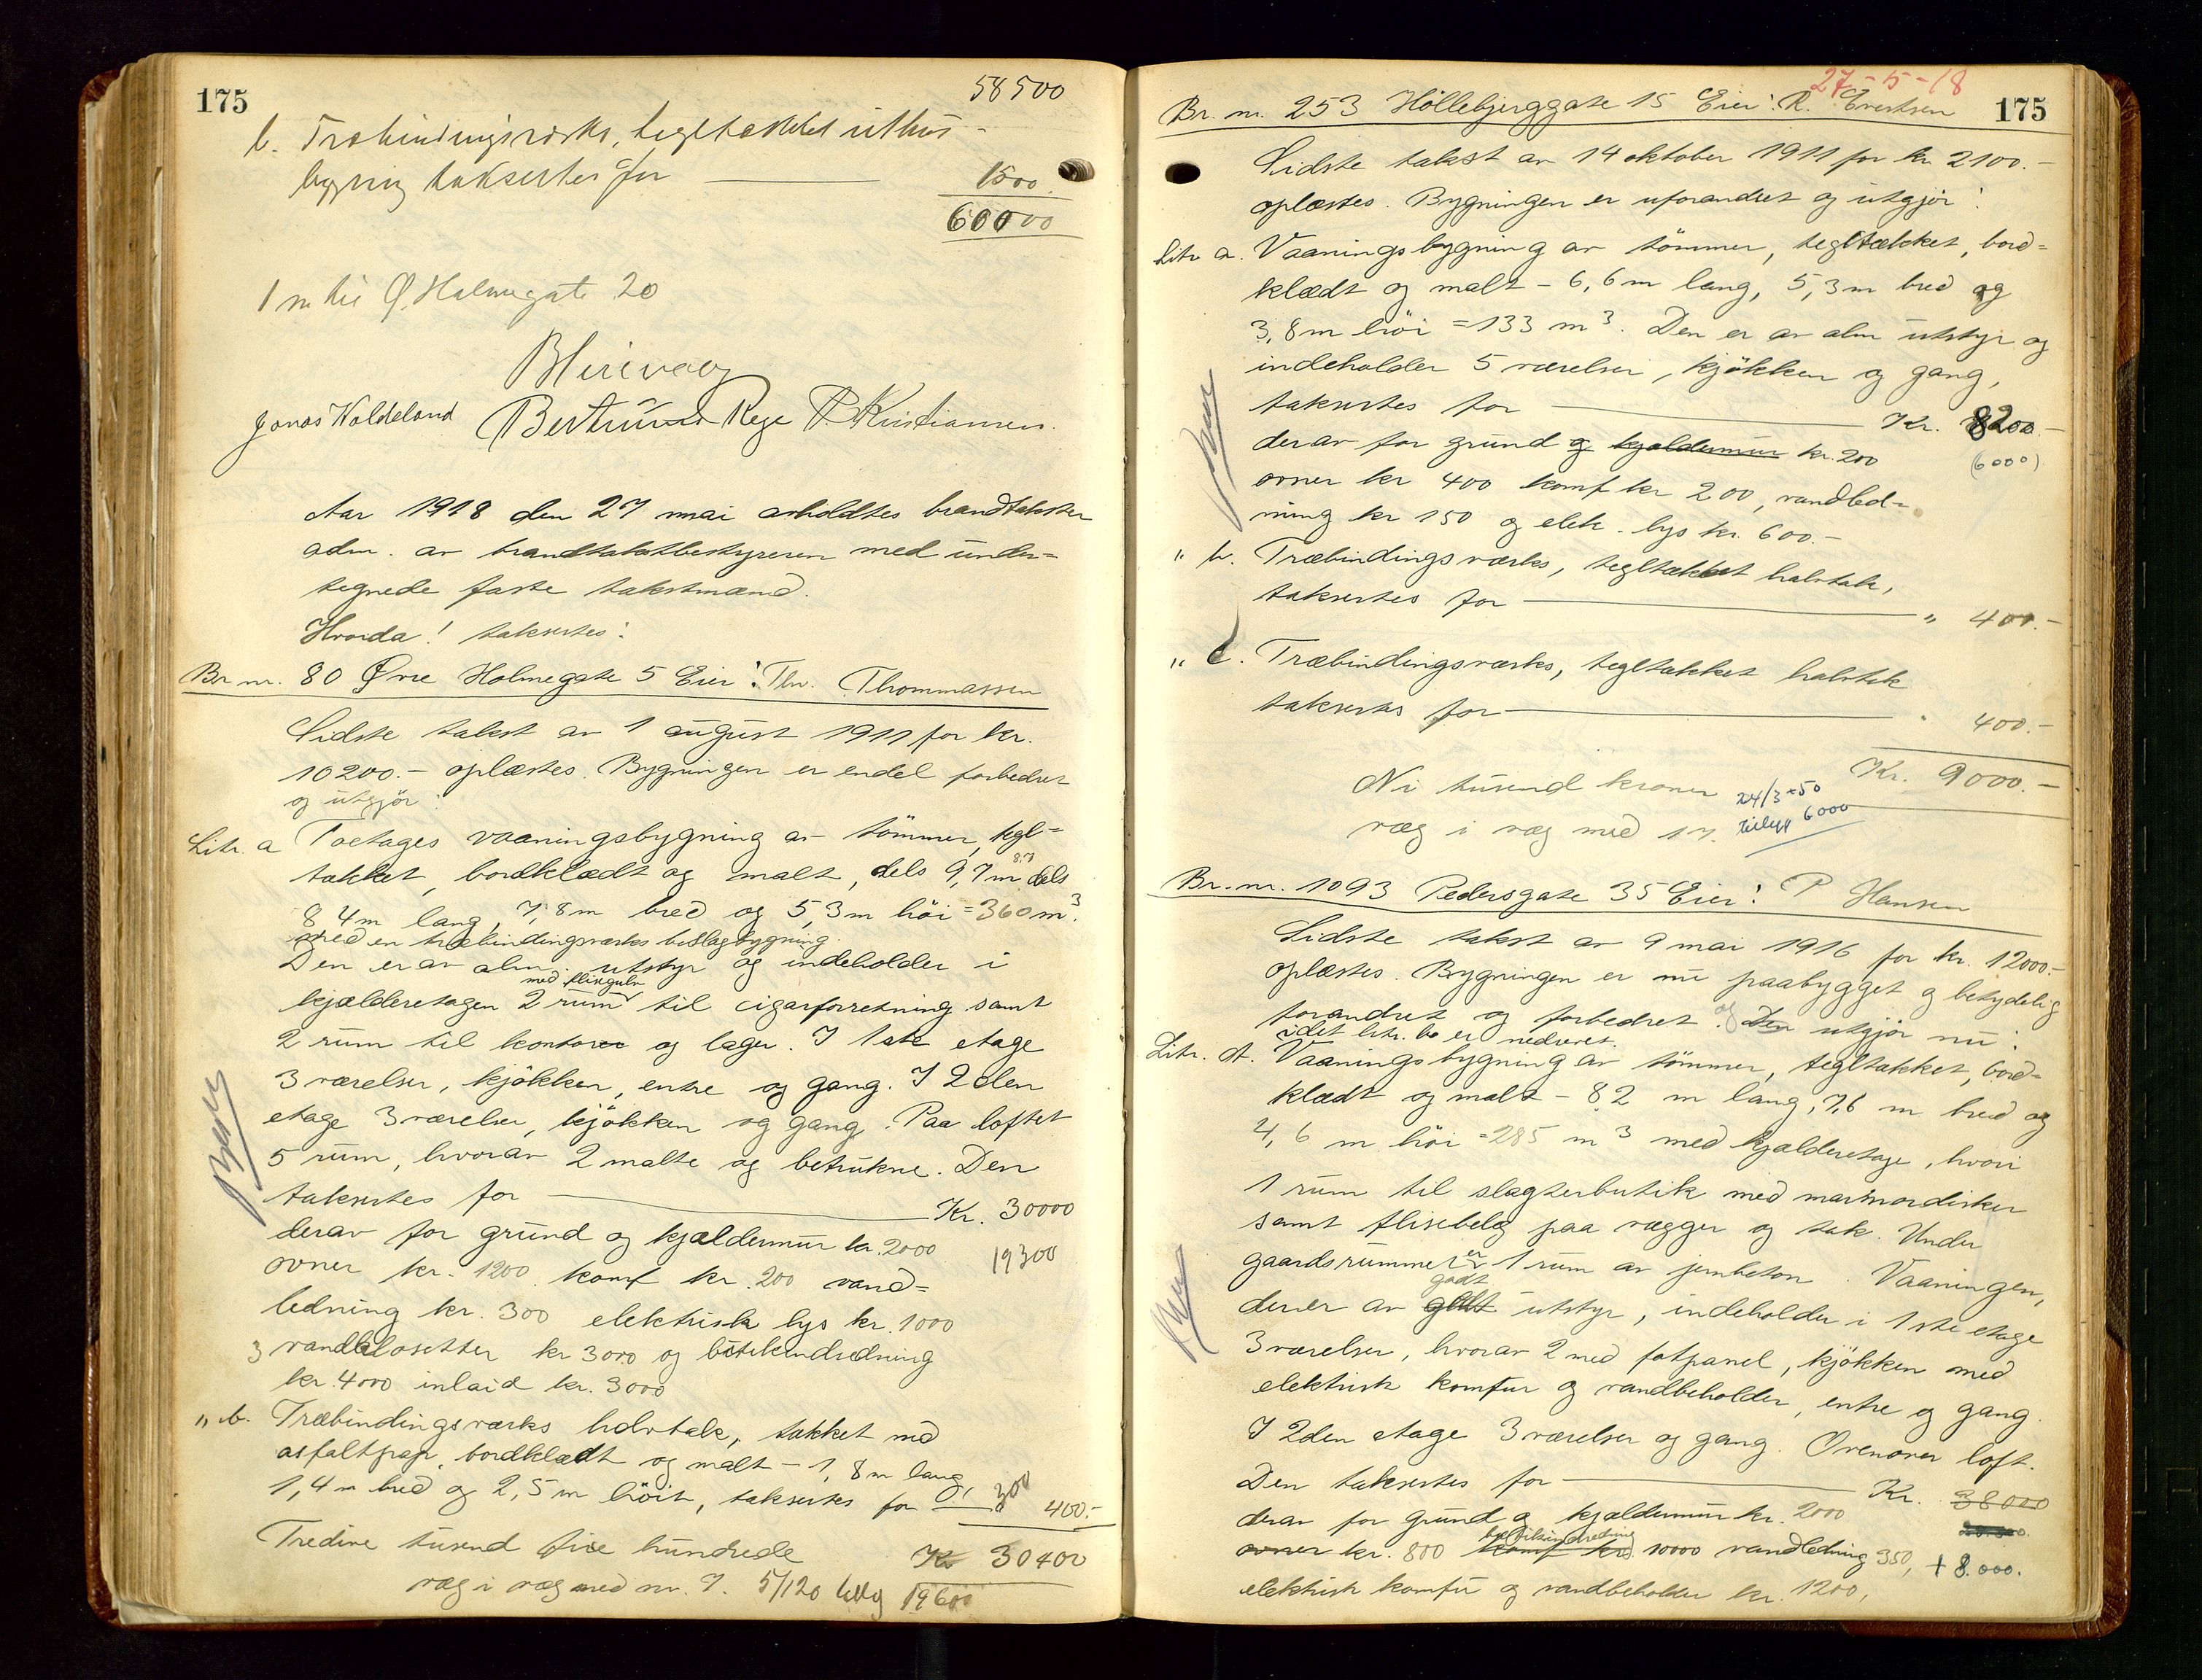 175
58500
b. Træbindingsværks, tegltækket uthus-
bygning taksertes for 1500.
60000
1 m til Ø. Holmegate 20
Jonas Woldeland Bertrand Rege P. Kristiansen.
Aar 1918 den 27 mai avholdtes brandtakster
adm. av brandtakstbestyreren med under=
tegnede faste takstmænd.
Hvorda! taksertes:
Br. nr. 80 Øvre Holmegate 5 Eier: Thv. Thommassen
Sidste takst av 1 august 1911 for kr.
10200.- oplæstes. Bygningen er endel forbedret
og utgjør:
Litr. a Toetages vaaningsbygning av tømmer, tegl=
tækket, bordklædt og malt, dels 9,7 m dels
8,4 m lang, 7,8 m bred og 5,3 m høi = 360 m³.
med en træbindingsværks beslagbygning
Den er av alm. utstyr og indeholder i
med flisgulv
kjælderetagen 2 rum til cigarforretning samt
2 rum til kontorer og lager. I 1ste etage
3 værelser, kjøkken, entre og gang. I 2den
etage 3 værelser, kjøkken og gang. Paa loftet
5 rum, hvorav 2 malte og betrukne. Den
taksertes for Kr. 30000
derav for grund og kjældermur kr. 2000 19300
ovner kr. 1200 komf kr. 200 vand=
ledning kr. 300 elektrisk lys kr. 1000
3 vandklosetter kr 3000 og butikindredning
kr. 4000 inlaid kr. 3000
" b. Træbindingsværks halvtak, tækket med
asfaltpap, bordklædt og malt - 1,8 m lang,
1,4 m bred og 2,5 m høit, taksertes for 300 400.-
Tredive tusend fire hundrede Kr 30400
væg i væg med nr. 7. 5/120 tillæg 19600
27-5-18
175
Br. nr. 253 Høllebjerggate 15 Eier: R. Evertsen
Sidste takst av 14 oktober 1911 for kr 2100.-
oplæstes. Bygningen er uforandret og utgjør:
Litr a. Vaaningsbygning av tømmer, tegltækket, bord=
klædt og malt - 6,6 m lang, 5,3 m bred og
3,8 m høi = 133 m³. Den er av alm utstyr og
indeholder 5 værelser, kjøkken og gang,
taksertes for Kr. 8200.-
derav for grund og kjældermur kr. 200 (6000)
ovner kr 400 komf kr 200, vandled-
ning kr 150 og elek. lys kr. 600.-
" b. Træbindingsværks, tegltækket halvtak,
taksertes for " 400.-
" c. Træbindingsværks, tegltækket halvtak
taksertes for " 400.-
Kr. 9000.-
Ni tusend kroner 24/3-50
væg i væg med 17. tillegg 6000
Br. nr. 1093 Pedersgate 35 Eier: P Hansen
Sidste takst av 9 mai 1916 for kr. 12000.-
oplæstes. Bygningen er nu paabygget og betydelig
forandret og forbedret. og Den utgjør nu:
idet litr. b er nedrevet.
Litr. A. Vaaningsbygning av tømmer, tegltækket, bord=
klædt og malt - 8,2 m lang, 7,6 m bred og
4,6 m høi = 285 m³ med kjælderetage, hvori
1 rum til slagterbutik med marmordisker
samt flisebelæg paa vægger og tak. Under
gaardsrummet er 1 rum av jernbeton. Vaaningen,
godt
der er av godt utstyr, indeholder i 1ste etage
3 værelser, hvorav 2 med fotpanel, kjøkken med
elektrisk komfur og vandbeholder, entre og gang.
I 2den etage 3 værelser og gang. Ovenover loft.
Den taksertes for Kr. 38000
derav for grund og kjældermur kr. 2000
butikindredning
ovner kr. 800 komf kr. 10000 vandledning 350, + 8.000.
elektrisk komfur og vandbeholder kr. 1200,